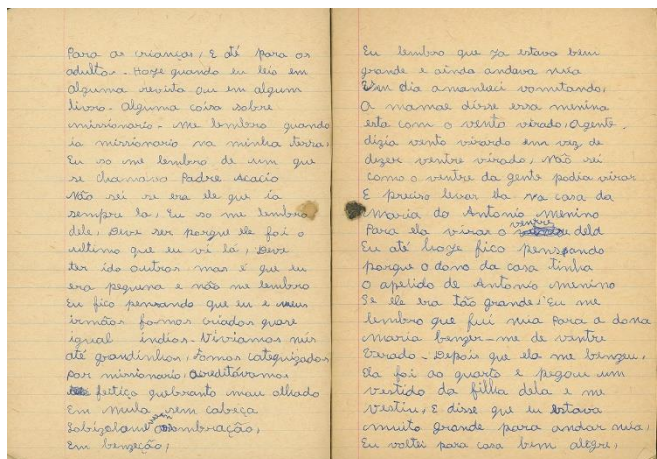 Para as crianças, E até para os
adultos. Hoze quando eu leio em
alguma revista ou em algum
livro. Alguma coisa sobre
missionario - me lembro quando
ia missionario na minha terra,
Eu so me lembro de um que
se chamava Padre Acacio
Não sei se era ele que ia
sempre la, Eu so me lembro
dele, Deve ser porque ele foi o
ultimo que eu vi lá, Deve
ter ido outros mas é que eu
era peguena e não me lembro
Eu fico pensando que eu e meus
irmãos fomos criados quase
igual indios. Viviamos nús
até grandinhos, fomos catequizados
por missionario, acreditávamos
feitiço quebranto mau olhado
Em mula sem cabeça
Lobizolame assombração,
Em benzeção,
Eu lembro que za estava bem
grande e ainda andava nua
Em dia amanheci vomitando,
A mamae disse essa menina
esta com o vento virado, agente
dizia vento virardo em vez de
dizer ventre virado, não sei
como o ventre da gente podia virar
E preciso levar Ela na casa da
Maria do Antonio menino
Para ela virar o ventre dela
Eu até hoze fico pensando
porque o dono da casa tinha
o apelido de Antonio menino
Se ele era tão grande! Eu me
lembro que fui nua Para a dona
maria benzer-me de ventre
Virado - Depois que ela me benzeu,
Ela foi ao quarto e pegou um
vestido da filha dela e me
vestiu, E disse que eu Estava
muito grande para andar nua,
Eu voltei para casa bem alegre,